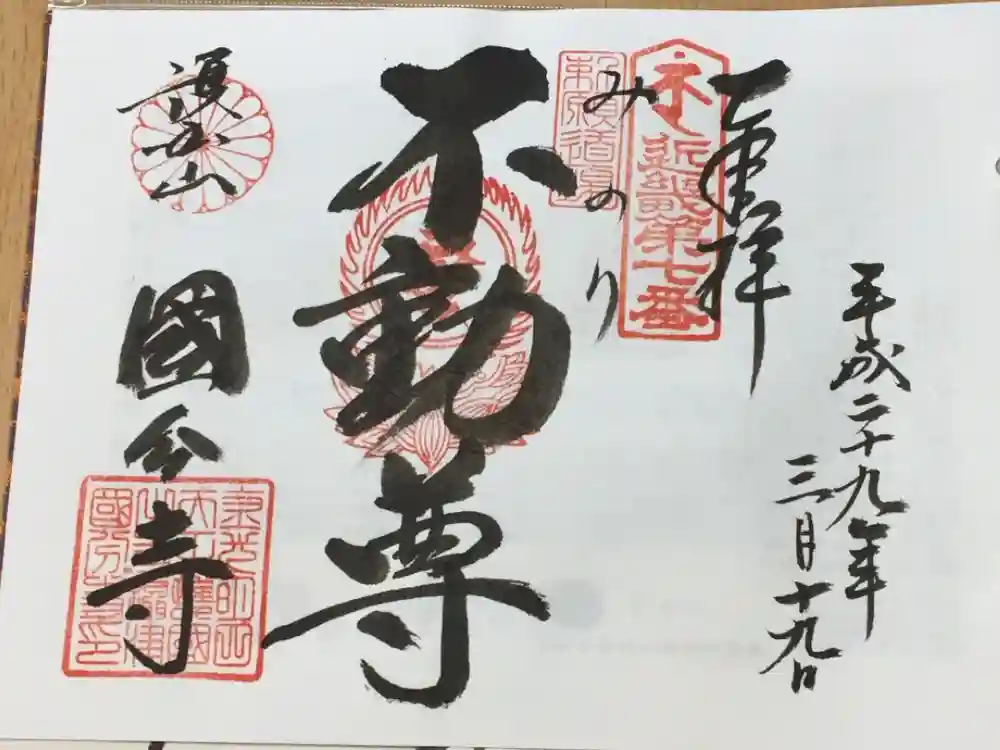 奉拝
平成二十九年
三月十九日
近畿第七番
勅願道場
みのり
不動尊
護国山
國分寺